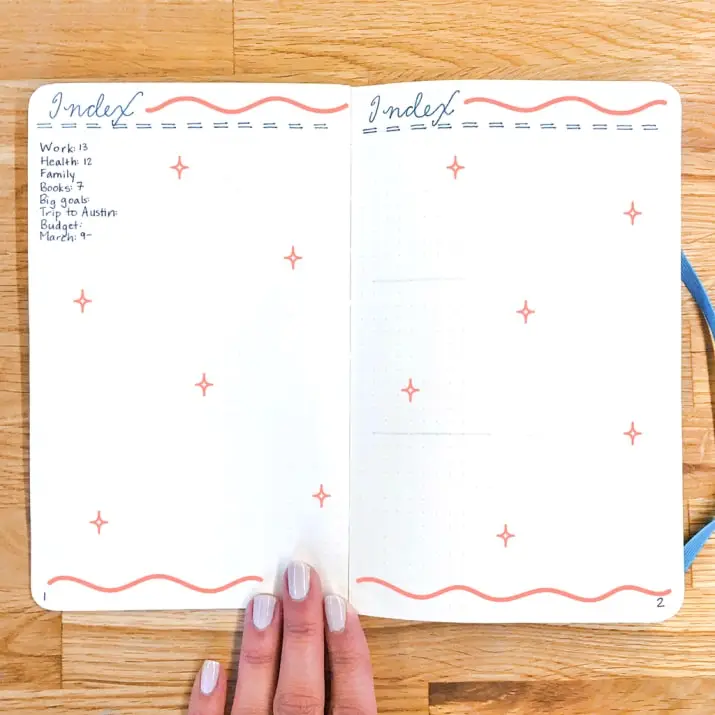 Index
Work: 13
Health: 12
Family
Books: 7
Big goals:
Trip to Austin:
Budget:
March: 9-
1
Index
2